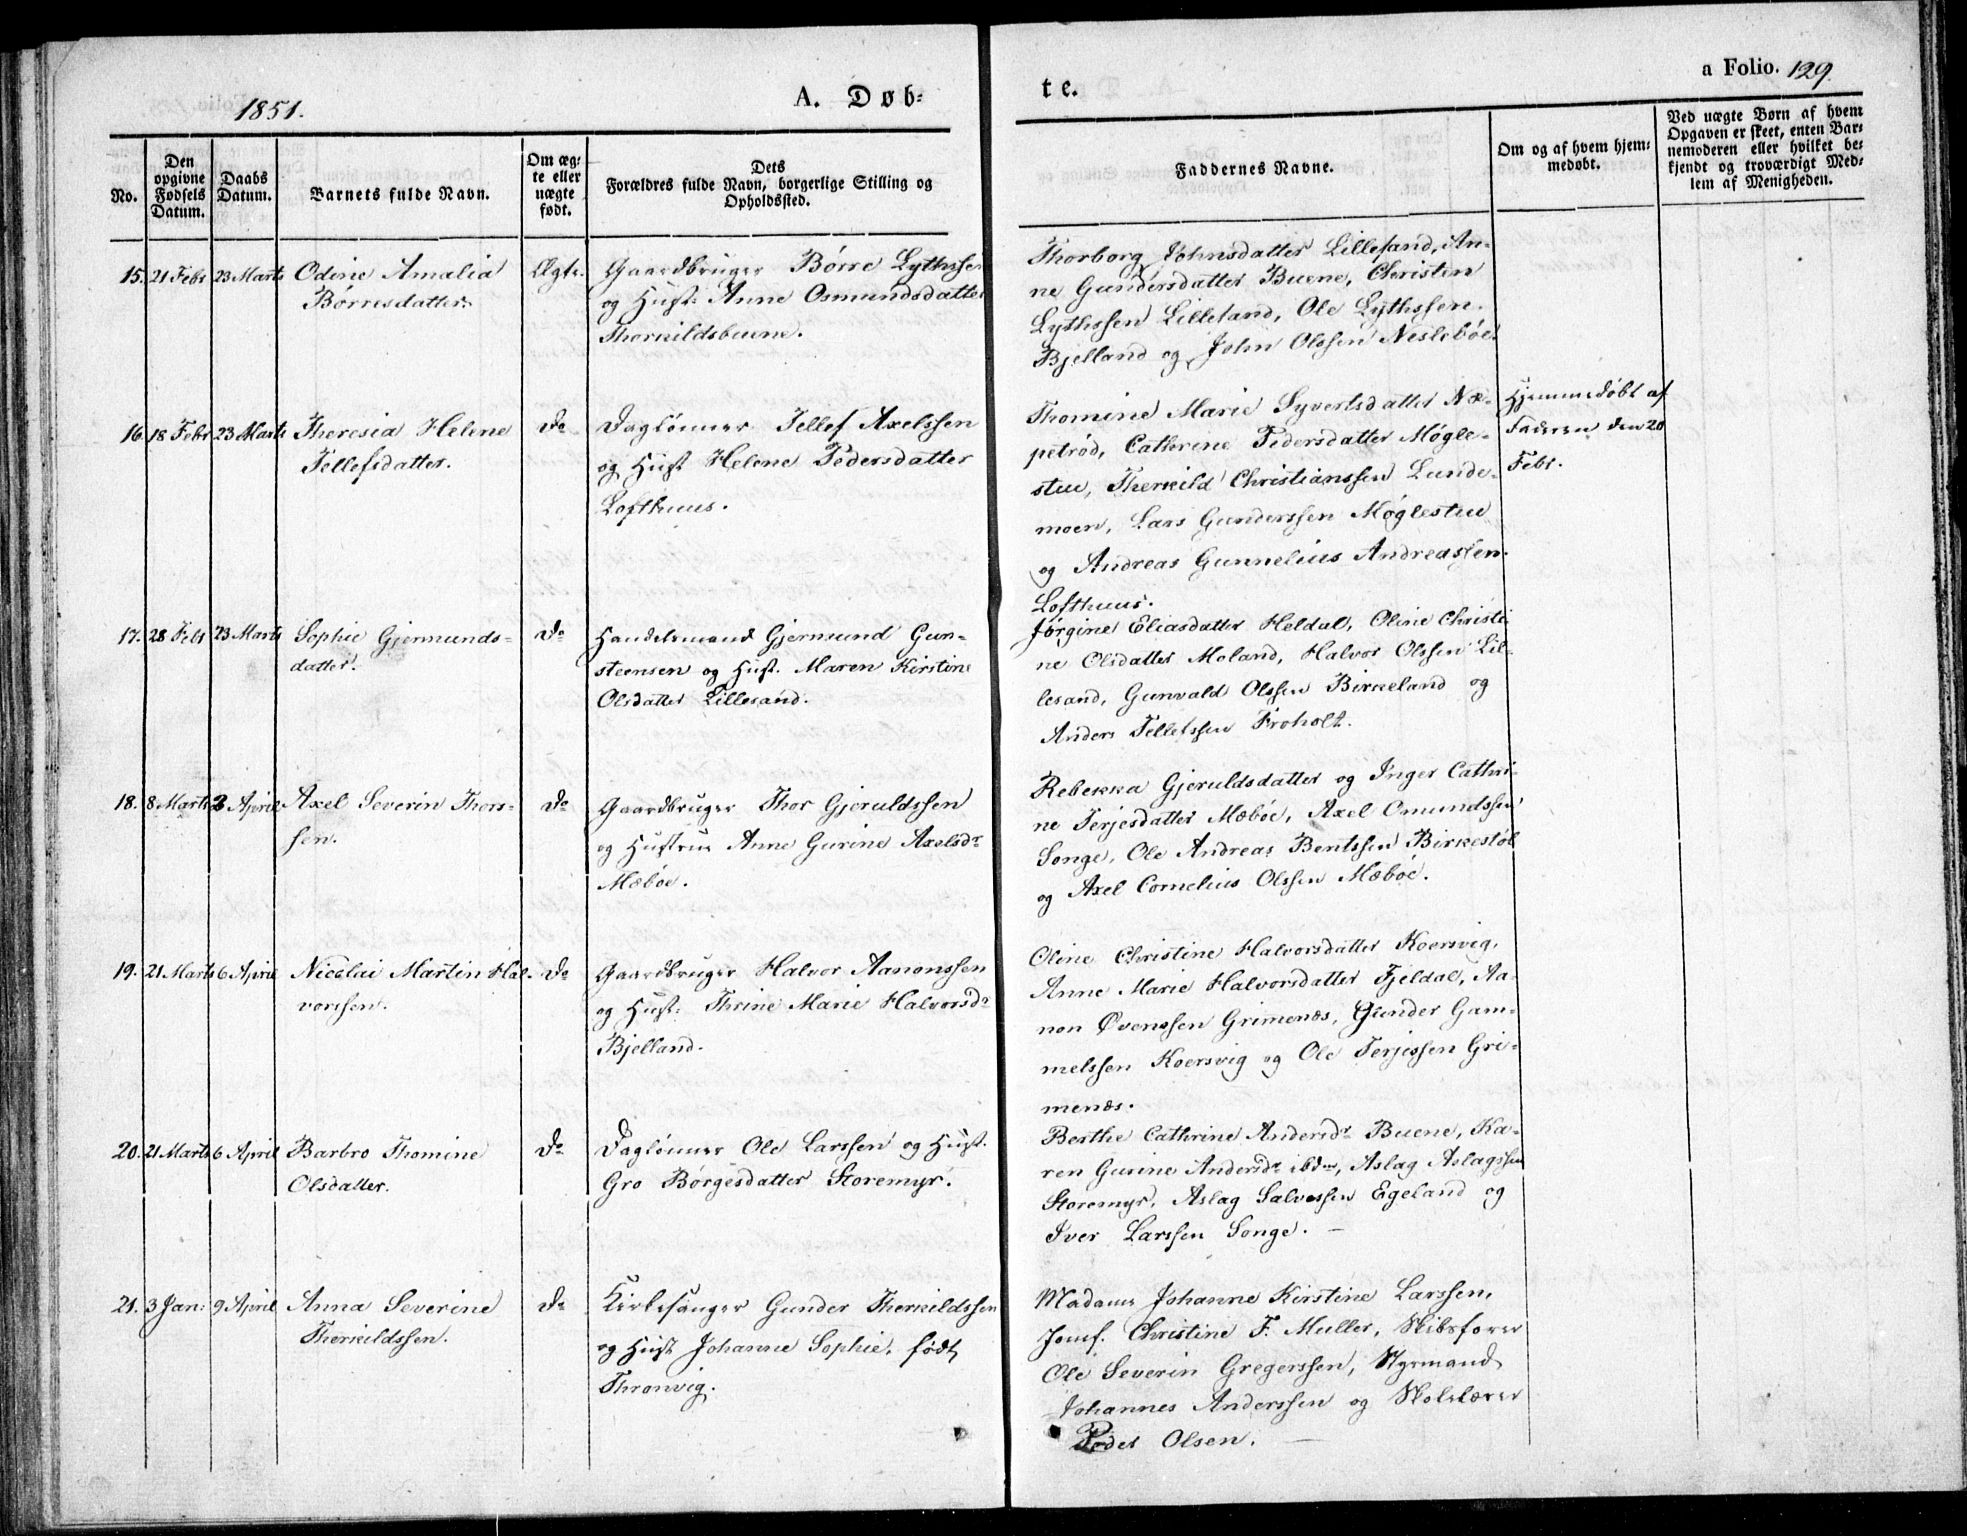 1851.
A. Døb-
te.
a Folio. 129.
No.
Den opgivne Fødsels Datum.
Daabs Datum.
Barnets fulde Navn.
Om ægte eller uægte født.
Dets Forældres fulde Navn, borgerlige Stilling og Opholdssted.
Faddernes Navne.
Om og af hvem hjemmedøbt.
Ved uægte Børn af hvem Opgaven er skeet, enten Barnemoderen eller hvilket bekjendt og troværdigt Medlem af Menigheden.
15. 21 Febr 23 Marts Odine Amalia Børresdatter. Ægte.
Gaardbruger Børre Lythssen
og Hust: Anne Osmundsdatter
Thorkildsbuene.
Thorborg Johnsdatter Lillesand, An-
ne Gundersdatter Buene, Christen
Lythssen Lilleland, Ole Lythssen
Bjelland og John Olssen Neslebøe.
16. 18 Febr 23 Marts Theresia Helene Tellefsdatter. Do
Daglønner Tellef Axelssen
og Hust Helene Pedersdatter
Lofthuus.
Thomine Marie Syvertsdatter Næ-
petrød, Cathrine Pedersdatter Møgle-
stue, Therkild Christianssen Lunde-
moen, Lars Gunderssen Møglestue
og Andreas Gunnelius Andreassen
Lofthuus.
Hjemmedøbt af
Faderen den 20
Febr.
17. 28 Febr 23 Marts Sophie Gjermunds-
datter. Do
Handelsmand Gjermund Gun-
steensen og Hust. Maren Kirstine
Olsdatter Lillesand.
Jørgine Eliasdatter Heldal, Oline Christi-
ne Olsdatter Moland, Halvor Olssen Lil-
lesand, Gunvald Olssen Birkeland og
Anders Tellefssen Froholt.
18. 8 Marts 3 April Axel Severin Thors-
sen. Do
Gaardbruger Thor Gjeruldssen
og Hustrue Anne Gurine Axelsdr
Mæbøe.
Rebekka Gjeruldsdatter og Inger Cathri-
ne Terjesdatter Mæbøe, Axel Omundssen
Songe, Ole Andreas Bentssen Birkestøl
og Axel Cornelius Olssen Mæbøe.
19. 21 Marts 6 April Nicolai Martin Hal-
vorssen. Do
Gaardbruger Halvor Aanonssen
og Hust: Thrine Marie Halvorsdr
Bjelland.
Oline Christine Halvorsdatter Koersvig,
Anne Marie Halvorsdatter Fjeldal, Aa-
non Øvenssen Grimenæs, Gunder Gam-
melssen Koersvig og Ole Terjessen Gri-
menæs.
20. 21 Marts 6 April Barbro Thomine
Olsdatter. Do
Daglønner Ole Larssen og Hust.
Gro Børgesdatter Storemyr.
Berthe Cathrine Andersdr Buene, Ka-
ren Gurine Andersdr ibdm, Aslag Aslagssen
Storemyr, Aslag Salvessen Egeland og
Iver Larssen Songe. –
21. 3 Jan: 9 April Anna Severine
Therkildssen. Do
Kirkesanger Gunder Therkildssen
og Hust Johanne Sophie, født
Thronvig.
Madame Johanne Kirstine Larssen,
Jomf. Christine F. Muller, Skibsfører
Ole Severin Gregerssen, Styrmand
Johannes Anderssen og Skolelærer
Peder Olsen. –